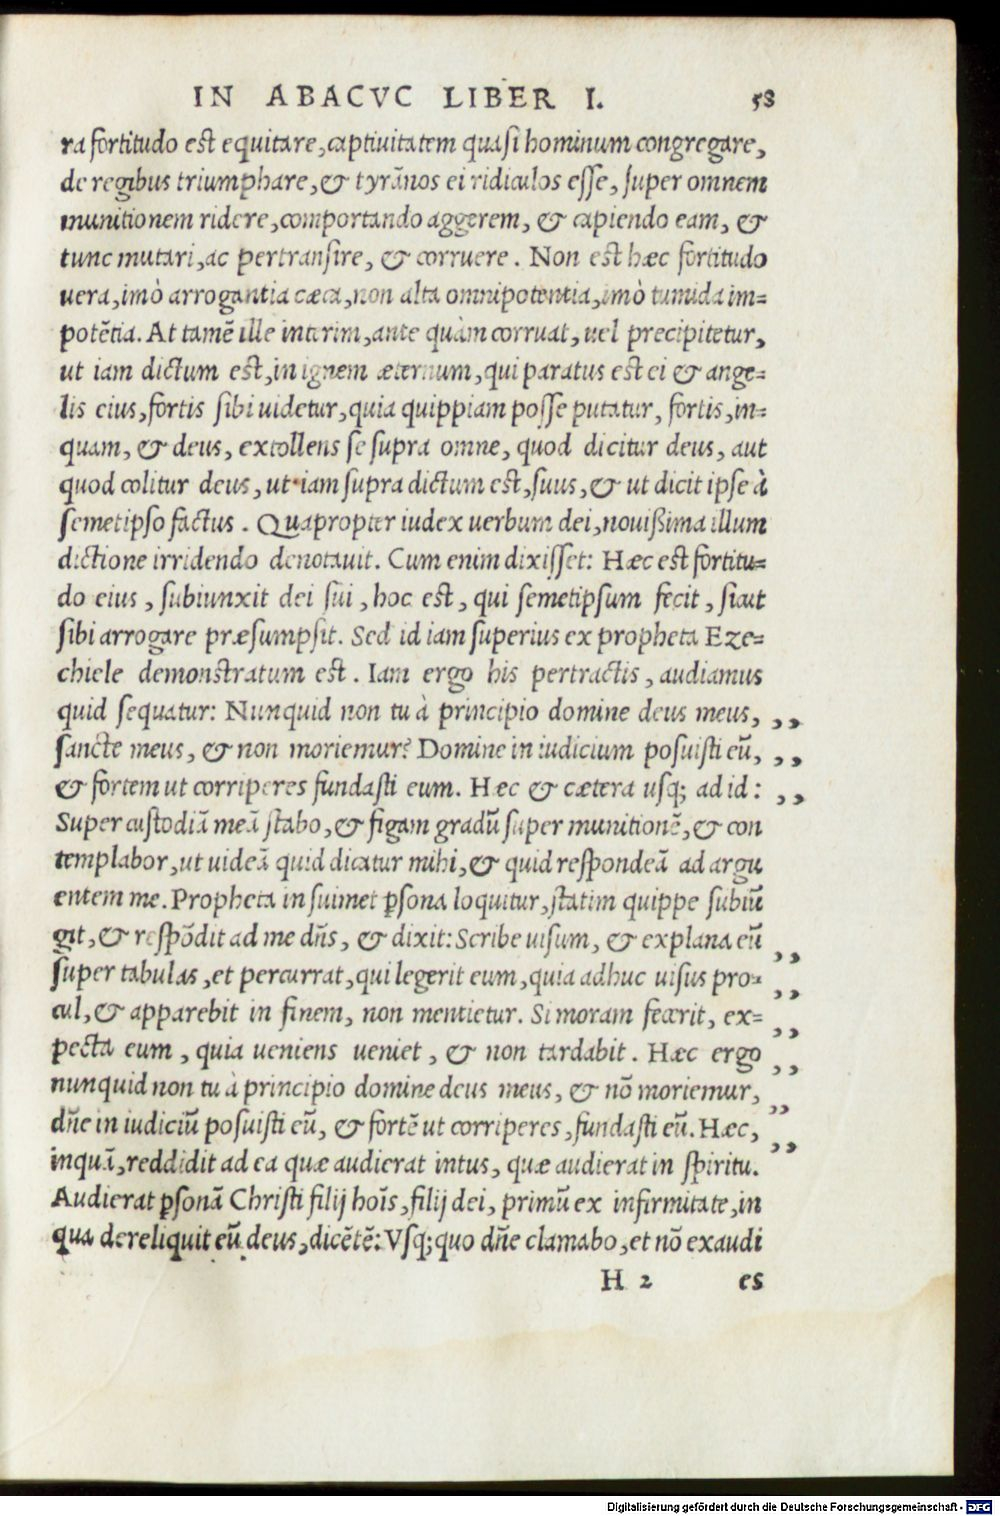 IN ABACVC LIBER I. 58
ra fortitudo est equitare, captiuitatem quasi hominum congregare,
de regibus triumphare, & tyrãnos ei ridiculos esse, super omnem
munitionem ridere, comportando aggerem, & capiendo eam, &
tunc mutari, ac pertransire, & corruere. Non est hæc fortitudo
uera, imò arrogantia cæca, non alta omnipotentia, imò tumida im=
potẽtia. At tamẽ ille interim, ante quàm corruat, uel precipitetur,
ut iam dictum est, in ignem æternum, qui paratus est ei & ange=
lis eius, fortis sibi uidetur, quia quippiam posse putatur, fortis, in=
quam, & deus, extollens se supra omne, quod dicitur deus, aut
quod colitur deus, ut iam supra dictum est, suus, & ut dicit ipse à
semetipso factus. Quapropter iudex uerbum dei, nouißima illum
dictione irridendo denotauit. Cum enim dixisset: Hæc est fortitu=
do eius, subiunxit dei sui, hoc est, qui semetipsum fecit, sicut
sibi arrogare præsumpsit. Sed id iam superius ex propheta Eze=
chiele demonstratum est. Iam ergo his pertractis, audiamus
quid sequatur: Nunquid non tu à principio domine deus meus, ,,
sancte meus, & non moriemur? Domine in iudicium posuisti eũ, ,,
& fortem ut corriperes fundasti eum. Hæc & cætera usq; ad id: ,,
Super custodiã meã stabo, & figam gradũ super munitionẽ, & con
templabor, ut uideã quid dicatur mihi, & quid respondeã ad argu
entem me. Propheta in suimet ꝑsona loquitur, statim quippe subiũ
git, & respõdit ad me dñs, & dixit: Scribe uisum, & explana eũ ,,
super tabulas, et percurrat, qui legerit eum, quia adhuc uisus pro= ,,
cul, & apparebit in finem, non mentietur. Si moram fecerit, ex= ,,
pecta eum, quia ueniens ueniet, & non tardabit. Hæc ergo ,,
nunquid non tu à principio domine deus meus, & nõ moriemur, ,,
dñe in iudiciũ posuisti eũ, & fortẽ ut corriperes, fundasti eũ. Hæc, ,,
inquã, reddidit ad ea quæ audierat intus, quæ audierat in spiritu.
Audierat ꝑsonã Christi filij hoĩs, filij dei, primũ ex infirmitate, in
qua dereliquit eũ deus, dicẽtẽ: Vsq; quo dñe clamabo, et nõ exaudi
H 2 es
Digitalisierung gefördert durch die Deutsche Forschungsgemeinschaft - DFG